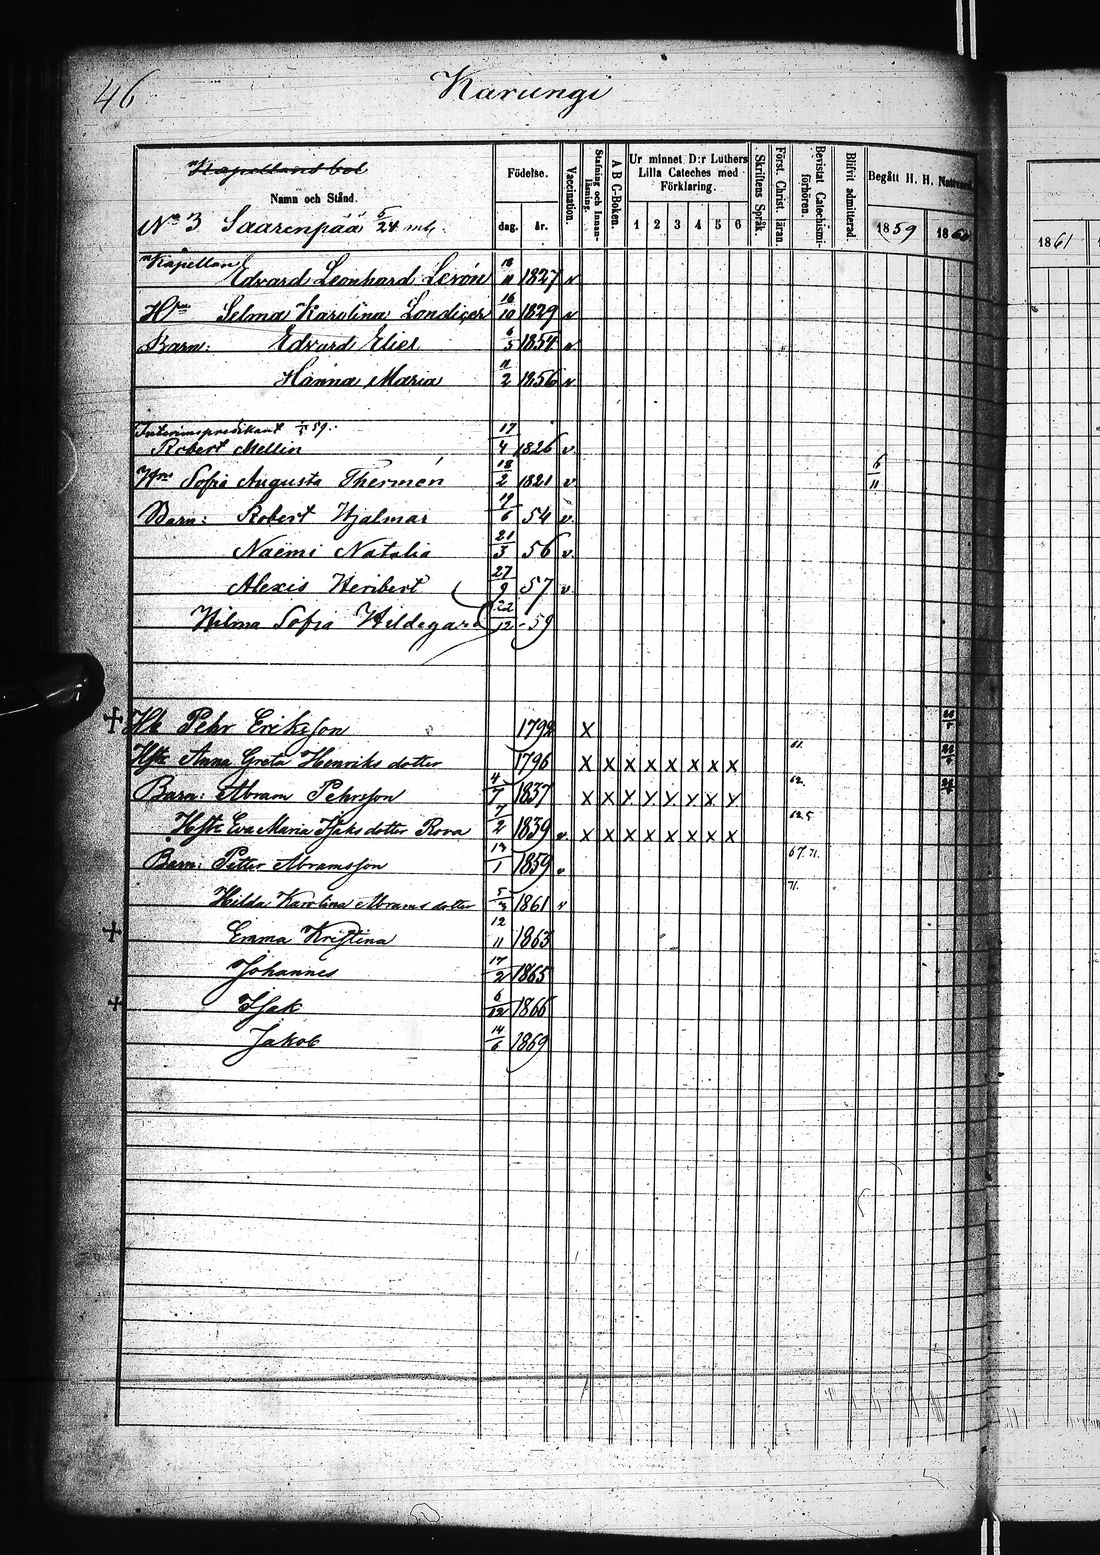 46
Karungi
Kapellans bol
Namn och Stånd.
No 3 Saarenpää 5/24 mtl.
Födelse.
dag. år.
Vaccination.
Stafning och Innanläsning.
A B C-Boken.
Ur minnet D:r Luthers Lilla Cateches med Förklaring.
1 2 3 4 5 6
Skriftens Språk.
Först. Christ. läran.
Bevistat Catechismiförhören.
Blifvit admitterad
Begått H. H. Nattvard.
1859 1860
1861
Kapellan
Edvard Leonhard Levón 18/11 1827 v
Hru Selma Karolina Londiçer 16/10 1829 v
Barn: Edvard Elier 6/5 1854 v
Hanna Maria 11/2 1856 v
Interimspredikant 59.
Robert Mellin 17/4 1826 v.
Hru Sofia Augusta Thermén 18/2 1821 v. 6/11
Barn: Robert Hjalmar 19/6 54 v.
Naëmi Natalia 21/3 56 v.
Alexis Heribert 27/9 57 v.
Hilma Sofia Hildegard 22/12 -59
+ Hb Pehr Eriksson 1792 X
Hst Anna Greta Henriksdotter 1796 X X X X X X X X 61.
Barn: Abram Pehrsson 4/7 1837 X X X X X X X X 62.
Hst Eva Maria Isaksdotter Rova 7/2 1839 v. X X X X X X X X 62.5
Barn: Petter Abramsson 13/1 1859 v 67.71.
Hilda Karolina Abramsdotter 5/3 1861 v 71.
+ Emma Kristina 12/11 1863
Johannes 17/2 1865
+ Isak 6/12 1866
Jakob 14/6 1869